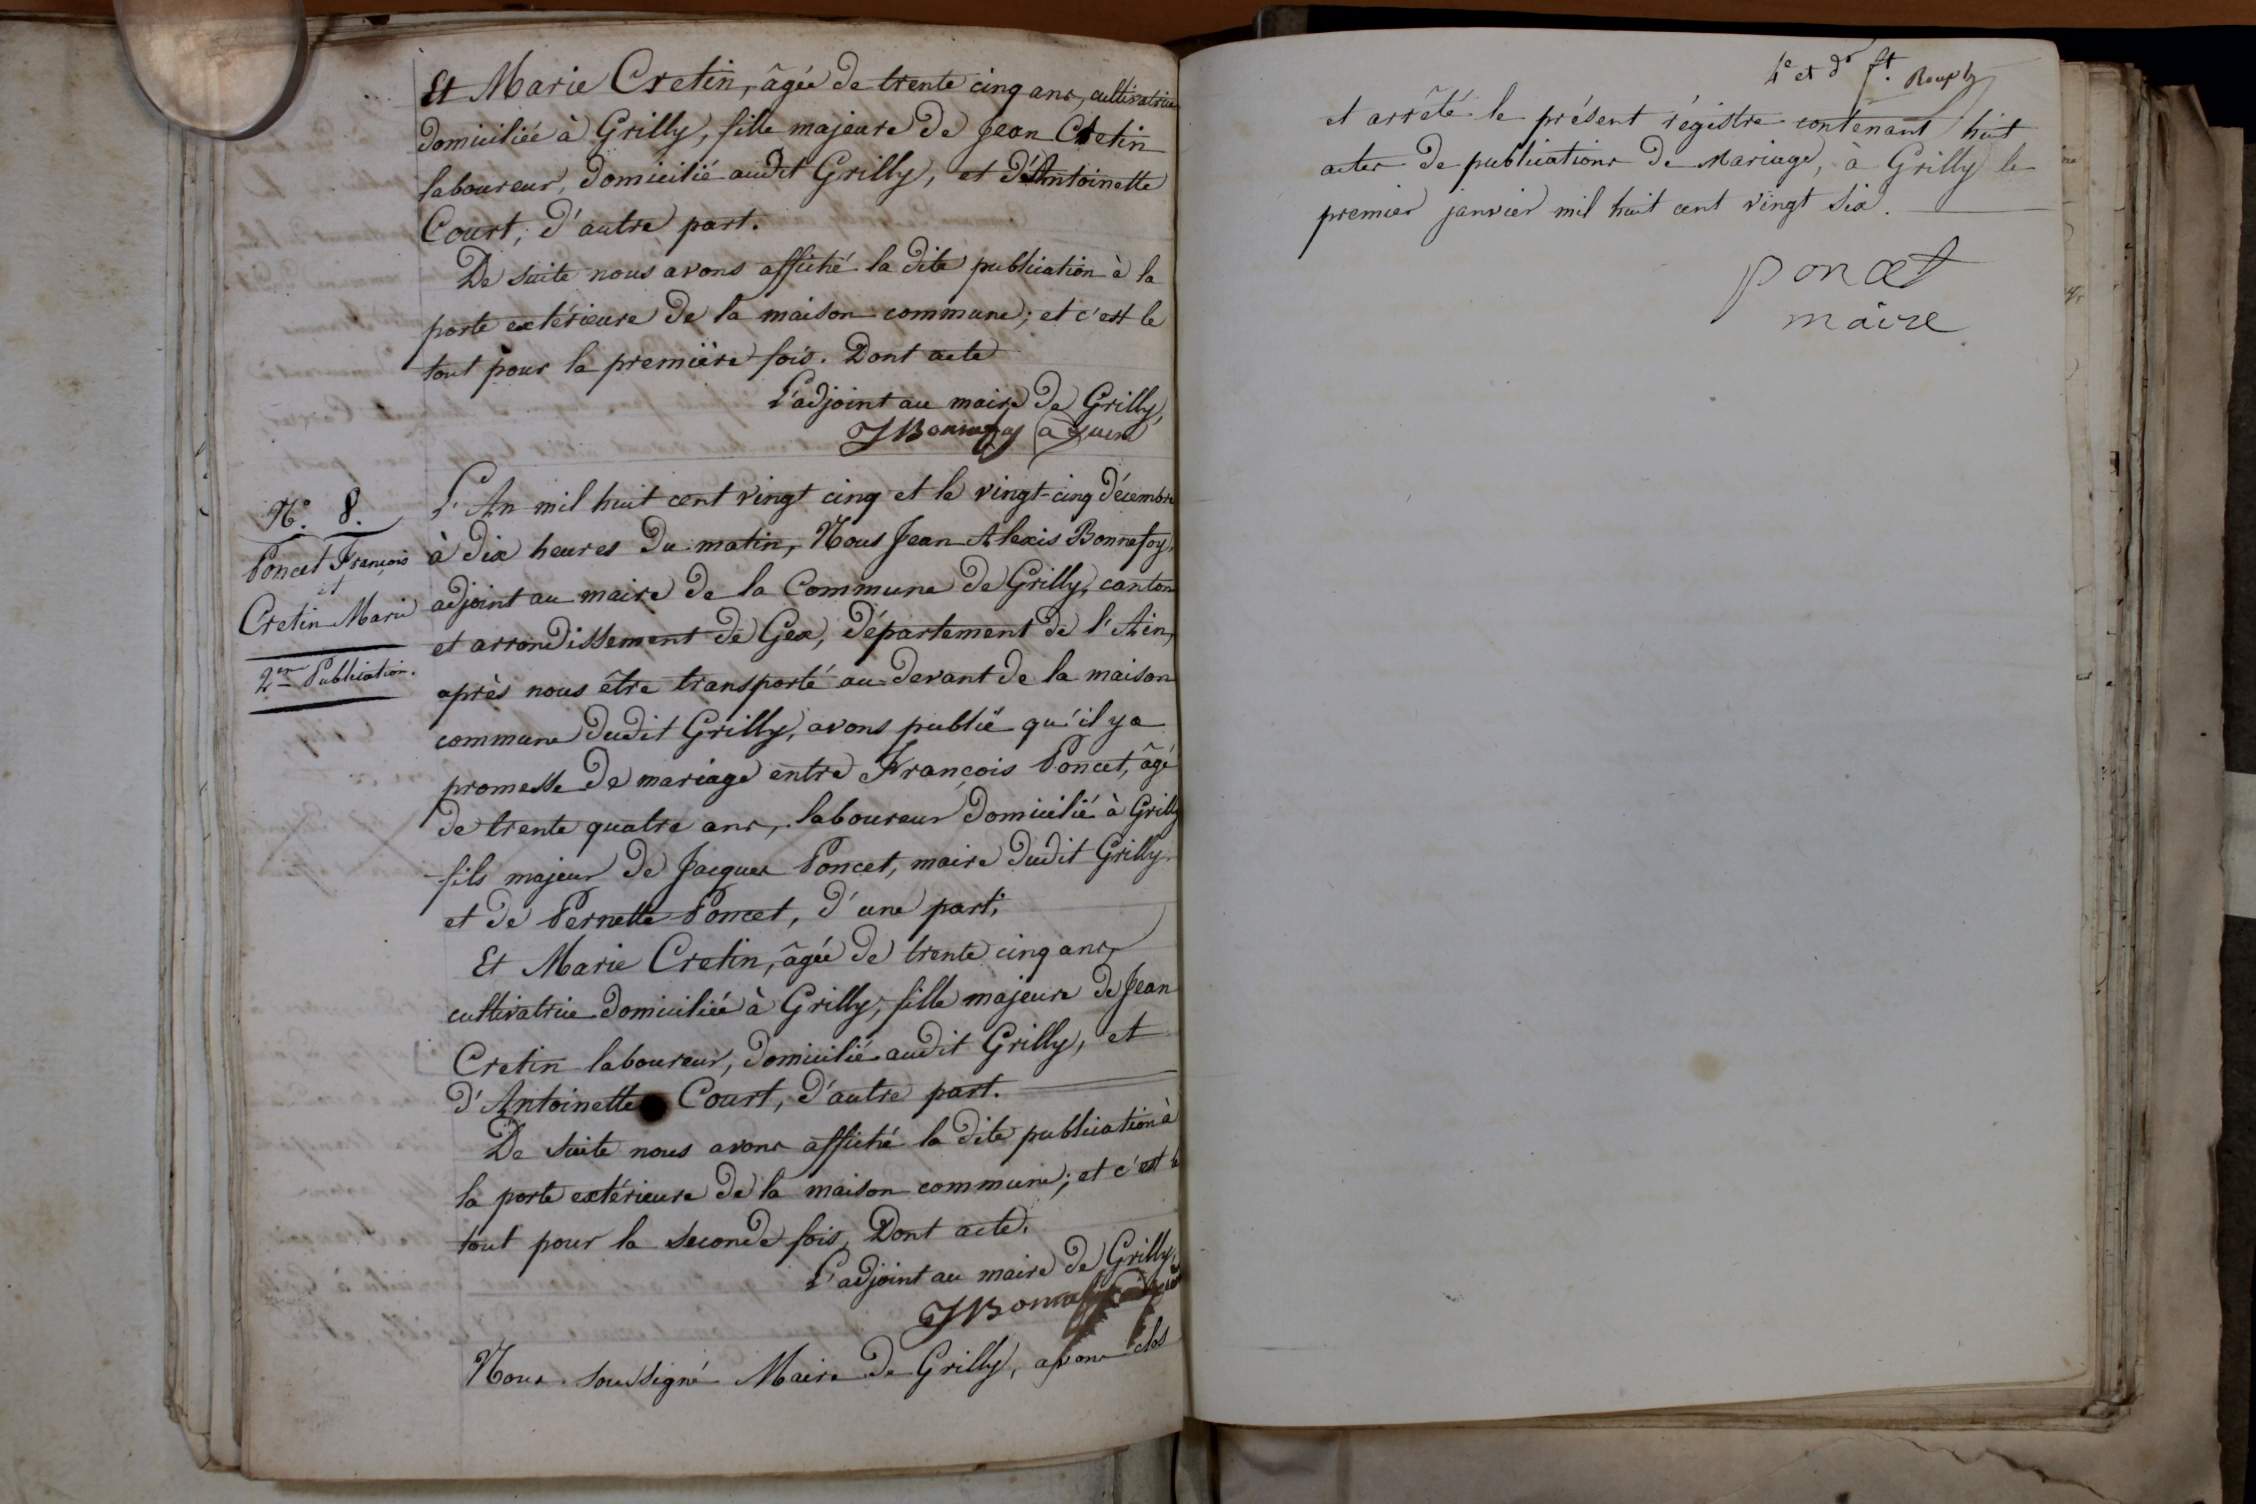 Et Marie Cretin, âgée de trente cinq ans, cultivatrice
domiciliée à Grilly, fille majeure de Jean Cretin
laboureur, domicilié audit Grilly, et d'Antoinette
Court, d'autre part.
De suite nous avons affiché la dite publication à la
porte extérieure de la maison commune; et c'est le
tout pour la première fois. Dont acte
L'adjoint au maire de Grilly,
JBonnefoy
N.º 8.
Poncet François
et
Cretin Marie
2.me Publication.
L'An mil huit cent vingt cinq et le vingt-cinq décembre
à dix heures du matin, Nous Jean Alexis Bonnefoy,
adjoint au maire de la Commune de Grilly, canton
et arrondissement de Gex, département de l'Ain,
après nous être transporté au devant de la maison
commune dudit Grilly, avons publié qu'il y a
promesse de mariage entre François Poncet, âgé
de trente quatre ans, laboureur domicilié à Grilly
fils majeur de Jacques Poncet, maire dudit Grilly
et de Pernette Poncet, d'une part;
Et Marie Cretin, âgée de trente cinq ans,
cultivatrice domiciliée à Grilly, fille majeure de Jean
Cretin laboureur, domicilié audit Grilly, et
d'Antoinette Court, d'autre part.
De suite nous avons affiché la dite publication à
la porte extérieure de la maison commune; et c'est le
tout pour la seconde fois, Dont acte.
L'adjoint au maire de Grilly,
JBonnefoy
Nous soussigné Maire de Grilly, avons clos
4e et dr ft.
et arrêté le présent régistre contenant huit
actes de publications de Mariage, à Grilly le
premier janvier mil huit cent vingt six.
poncet
maire